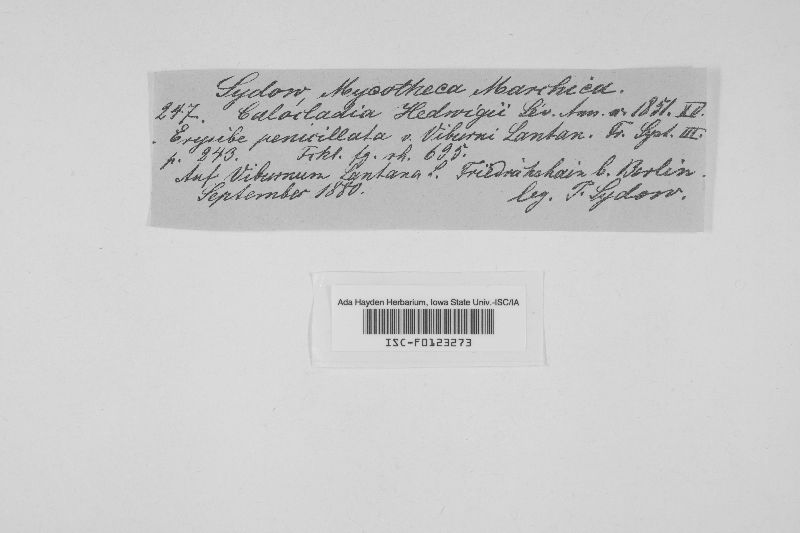 Sydow, Mycotheca Marchica.
247. Calocladia Hedwigii Lév. Ann. a. 1851. XV.
Erysibe penicillata v. Viburni Lantan. Fr. Syst. III.
p. 243. Fckl. fg. rh. 695.
Auf Viburnum Lantana L. Friedrichshain b. Berlin.
September 1880. leg. P. Sydow.
Ada Hayden Herbarium, Iowa State Univ.-ISC/IA
ISC-F0123273